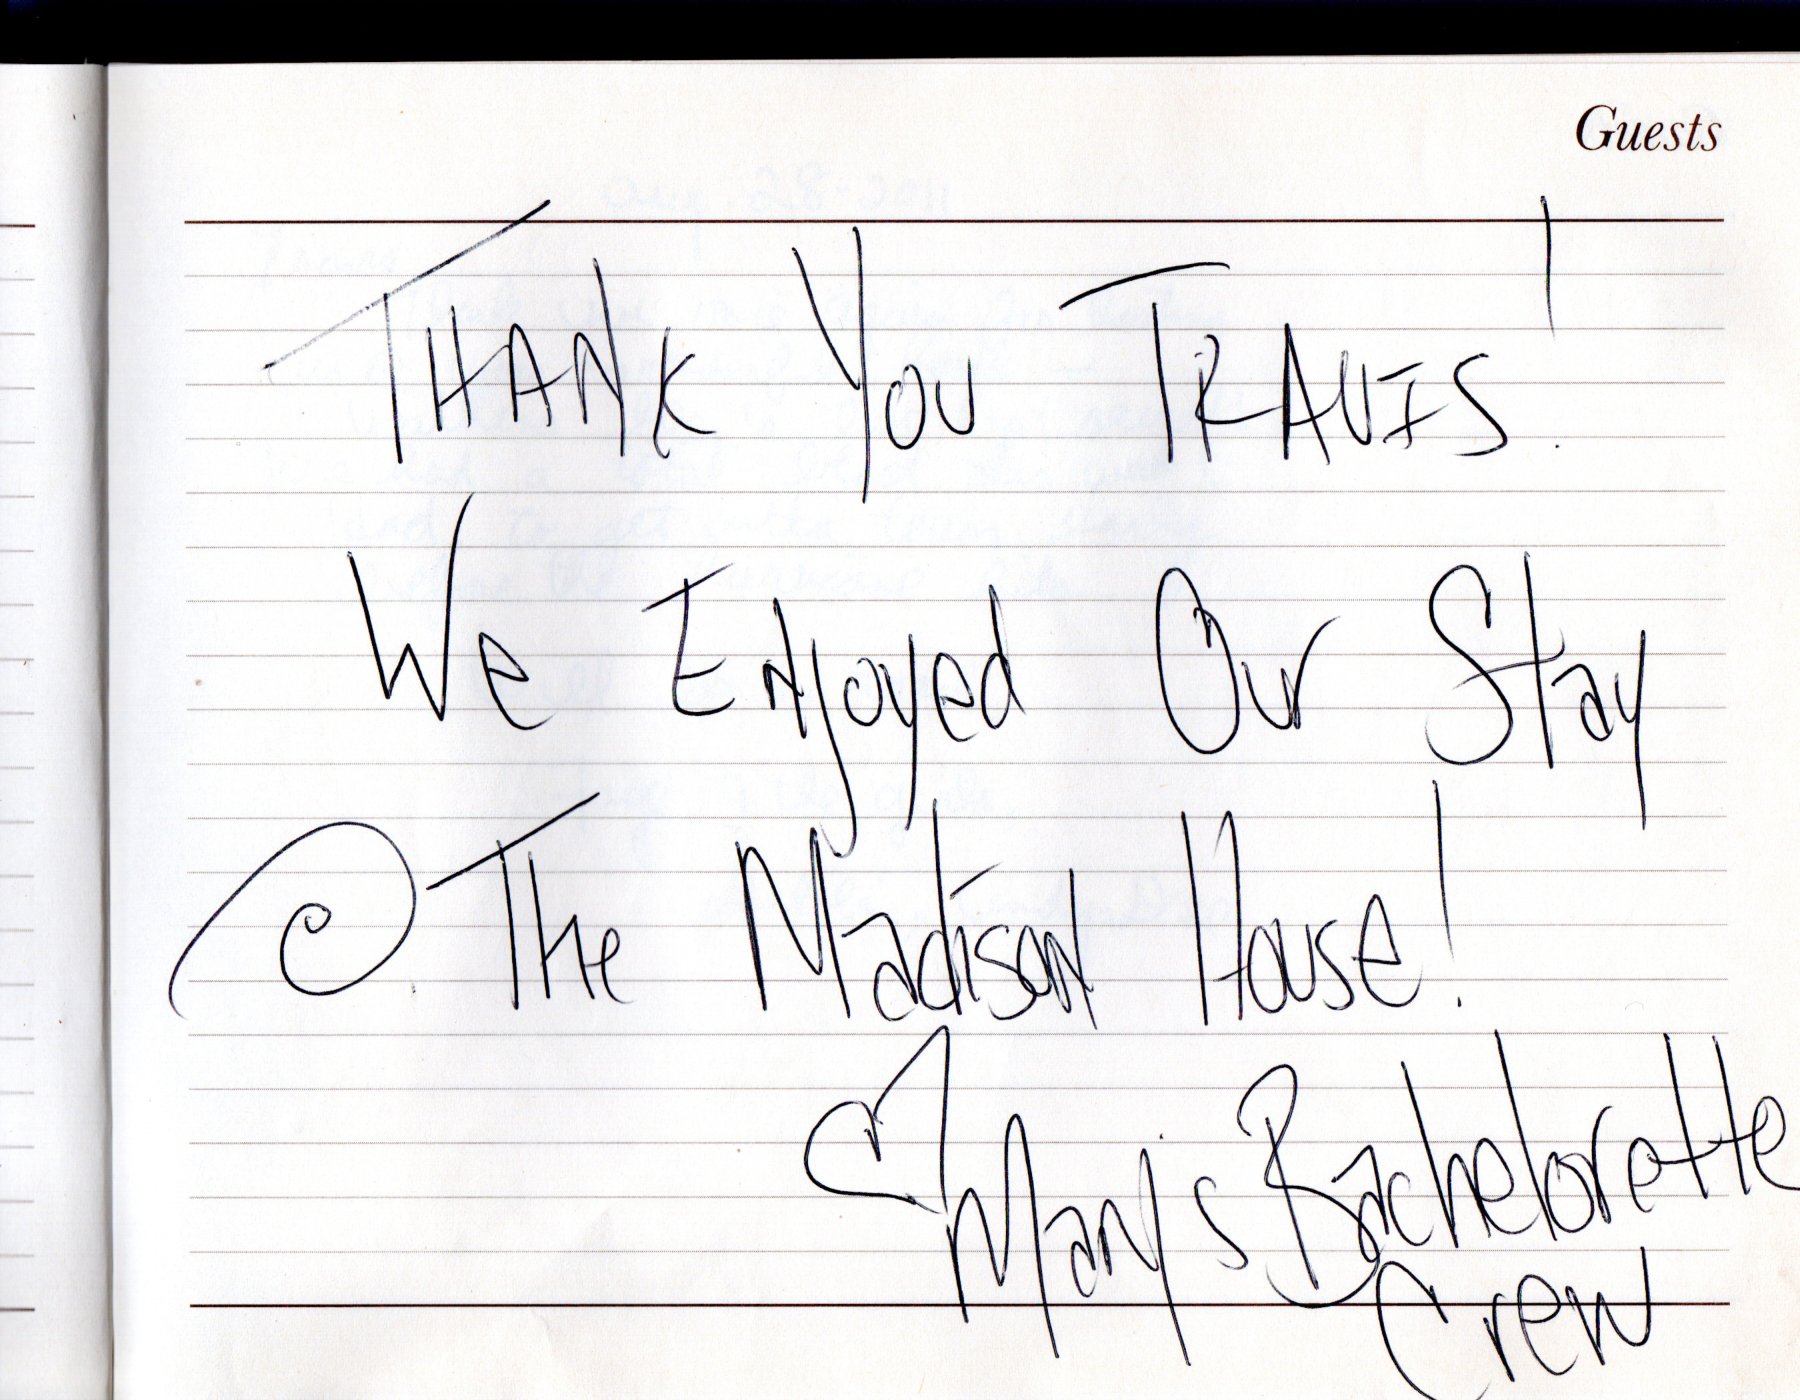 Guests
THANK YOU TRAVIS!
We Enjoyed Our Stay
@ The Madison House!
♡ Mary's Bachelorette
Crew